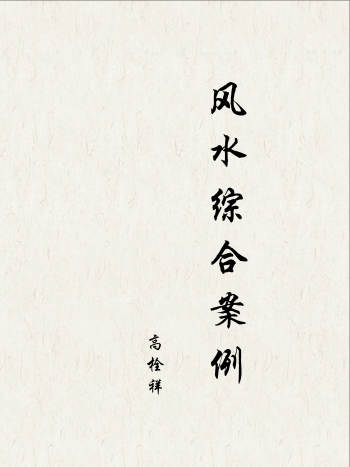 风水综合案例
高栓祥